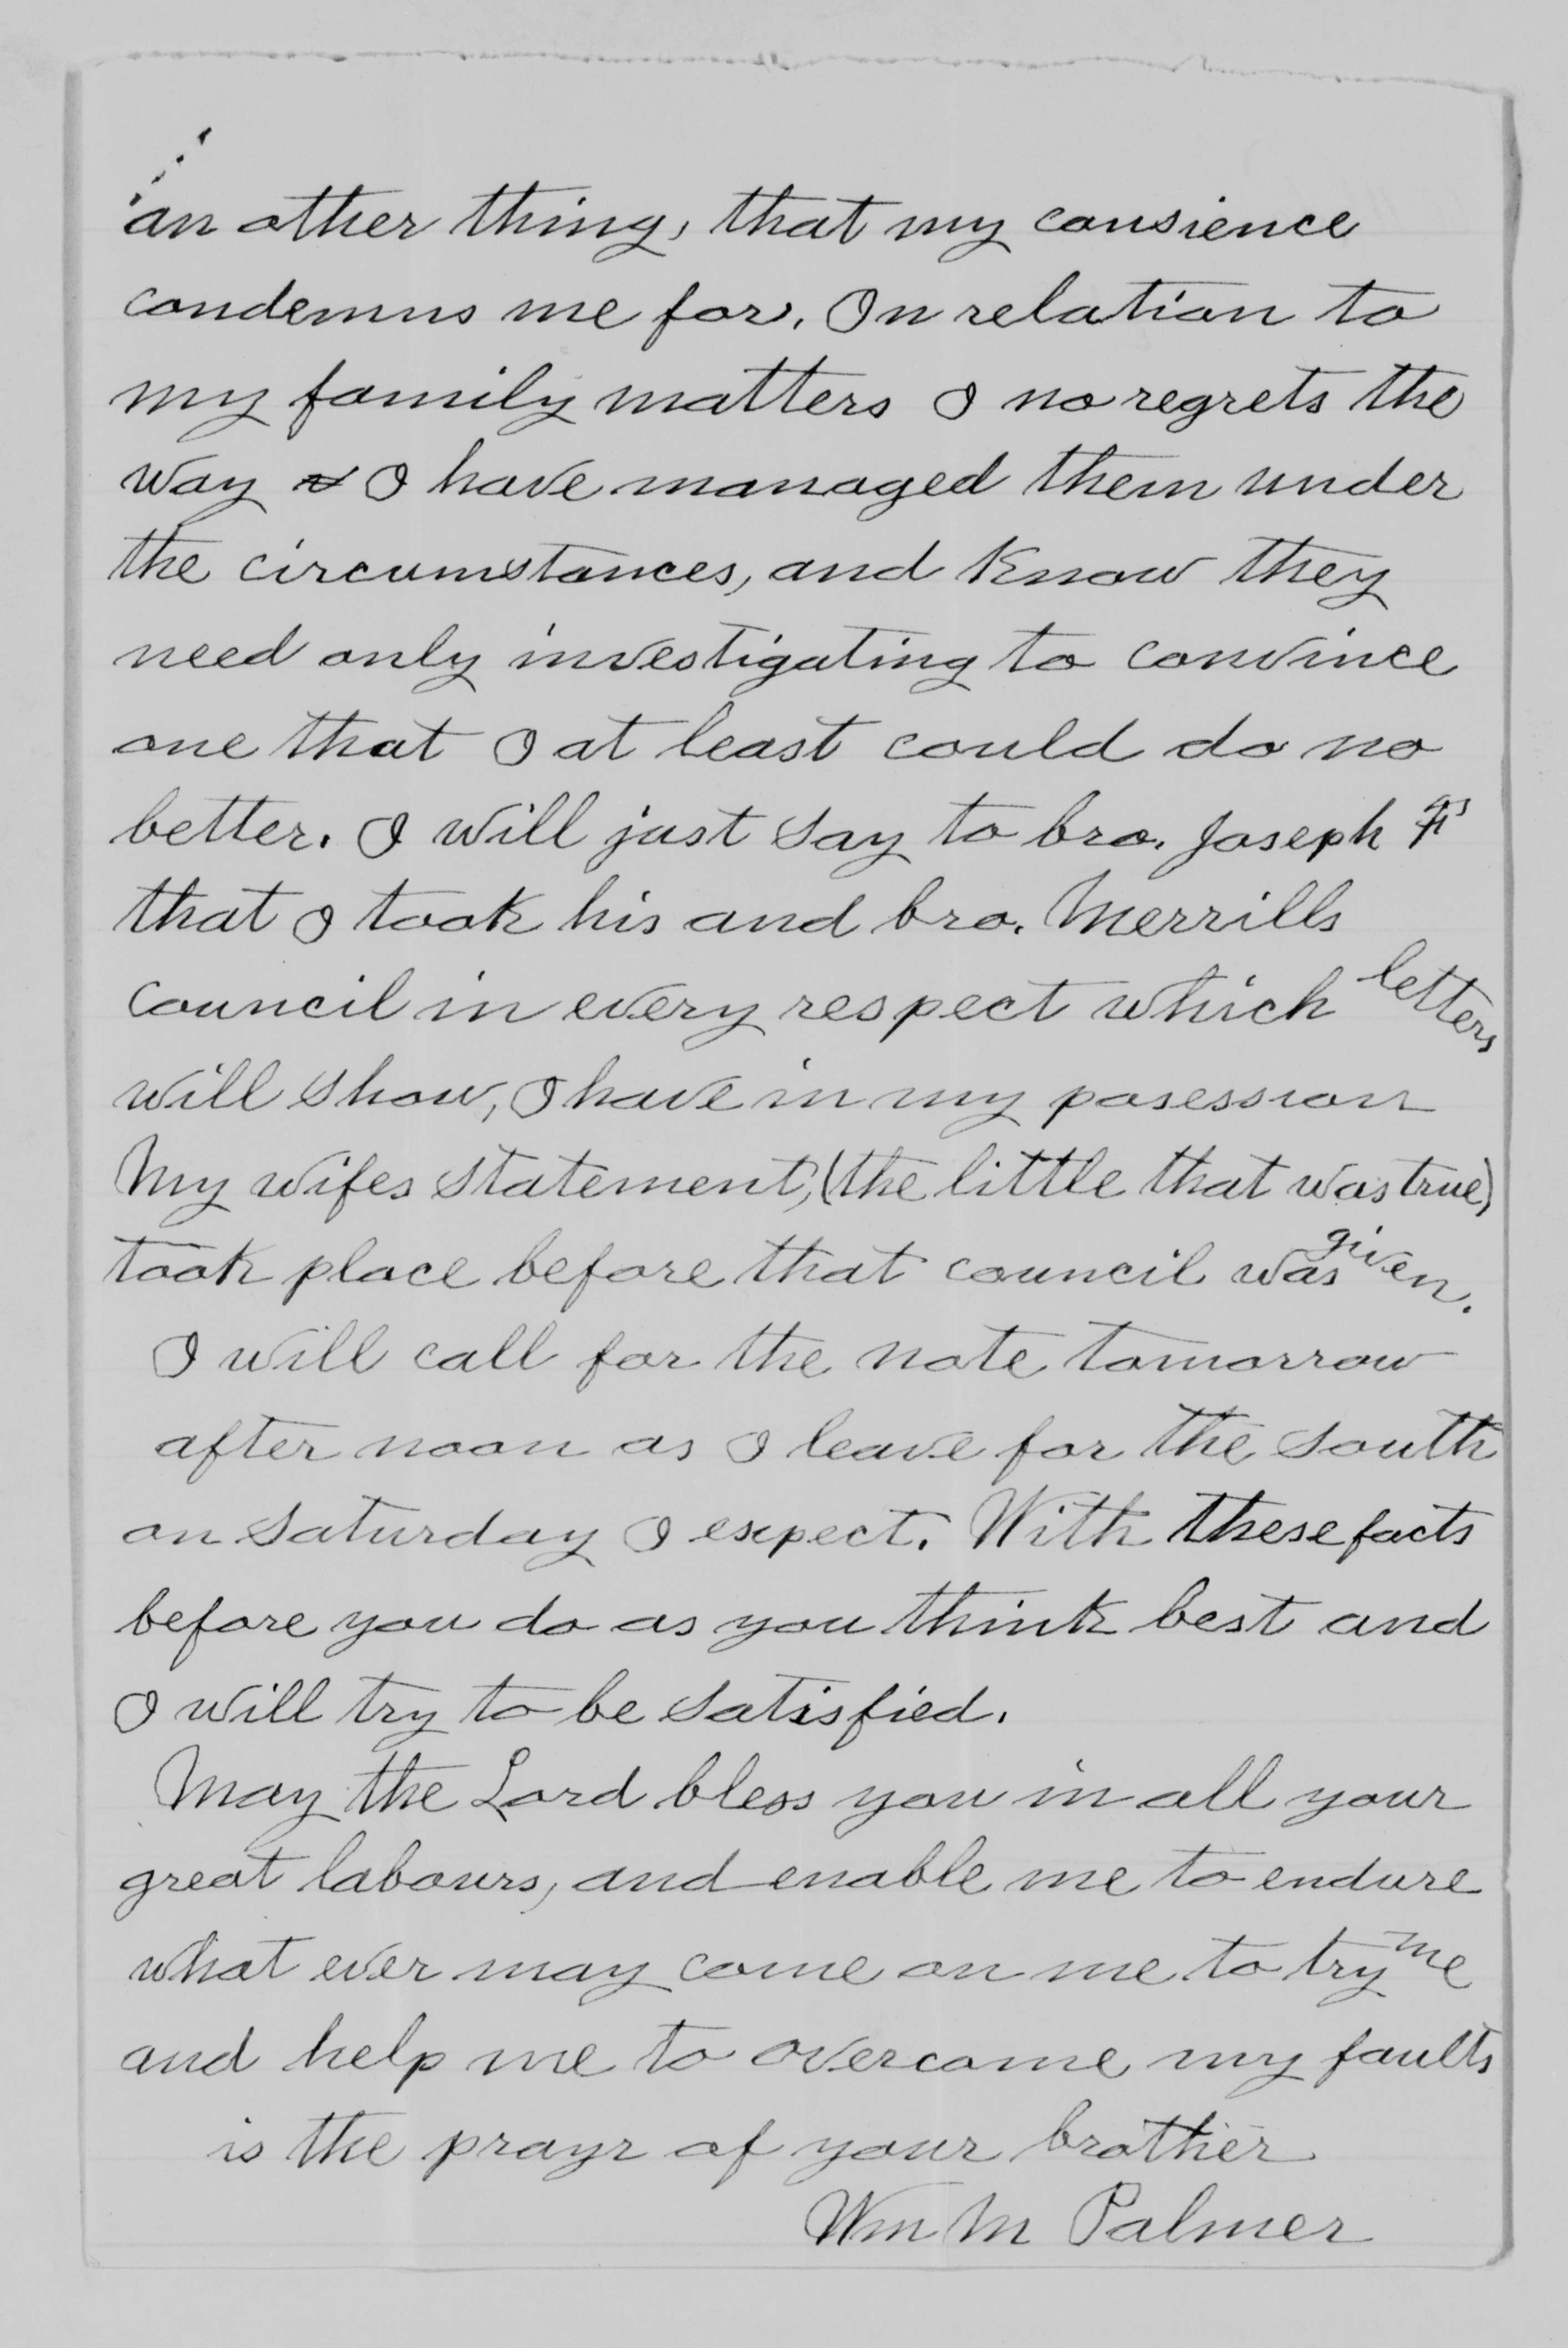 an other thing, that my consience
condemns me for. In relation to
my family matters I no regrets the
way I have managed them under
the circumstances, and know they
need only investigating to convince
one that I at least could do no
better. I will just say to bro. Joseph
that I took his and bro. Merrills
council in every respect which letters
will show, I have in my posession
My wifes statement, (the little that was true)
took place before that council was given.
I will call for the note tomorrow
after noon as I leave for the south
on Saturday I expect. With these facts
before you do as you think best and
I will try to be satisfied.
May the Lord bless you in all your
great labours, and enable me to endure
what ever may come on me to try me
and help me to overcome my faults
is the prayr of your brother
Wm M Palmer